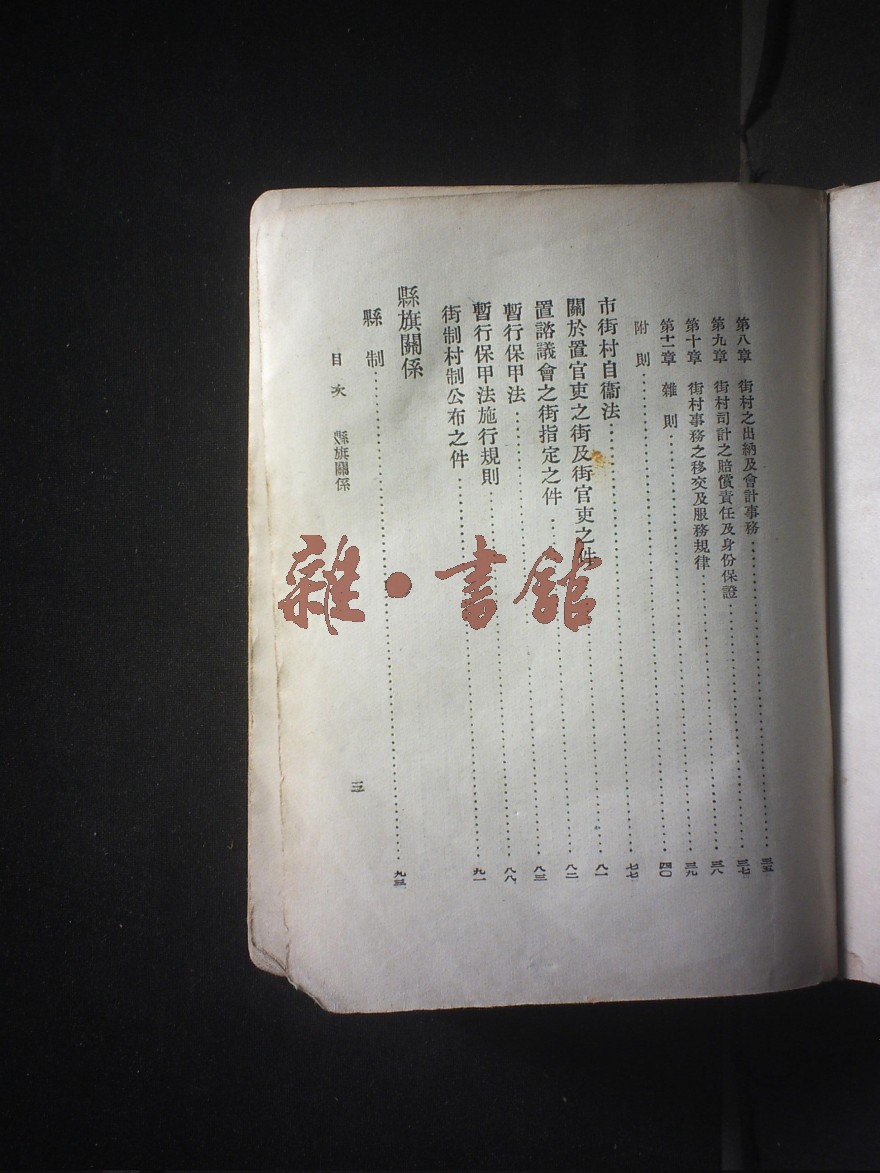 第八章 街村之出納及會計事務……三五
第九章 街村司計之賠償責任及身份保證……三七
第十章 街村事務之移交及服務規律……三八
第十一章 雜則……三九
附則……四〇
市街村自衞法……七七
關於置官吏之街及街官吏之件……八一
置諮議會之街指定之件……八二
暫行保甲法……八三
暫行保甲法施行規則……八八
街制村制公布之件……九一
縣旗關係
縣制……九三
目次 縣旗關係
三
雜·書館